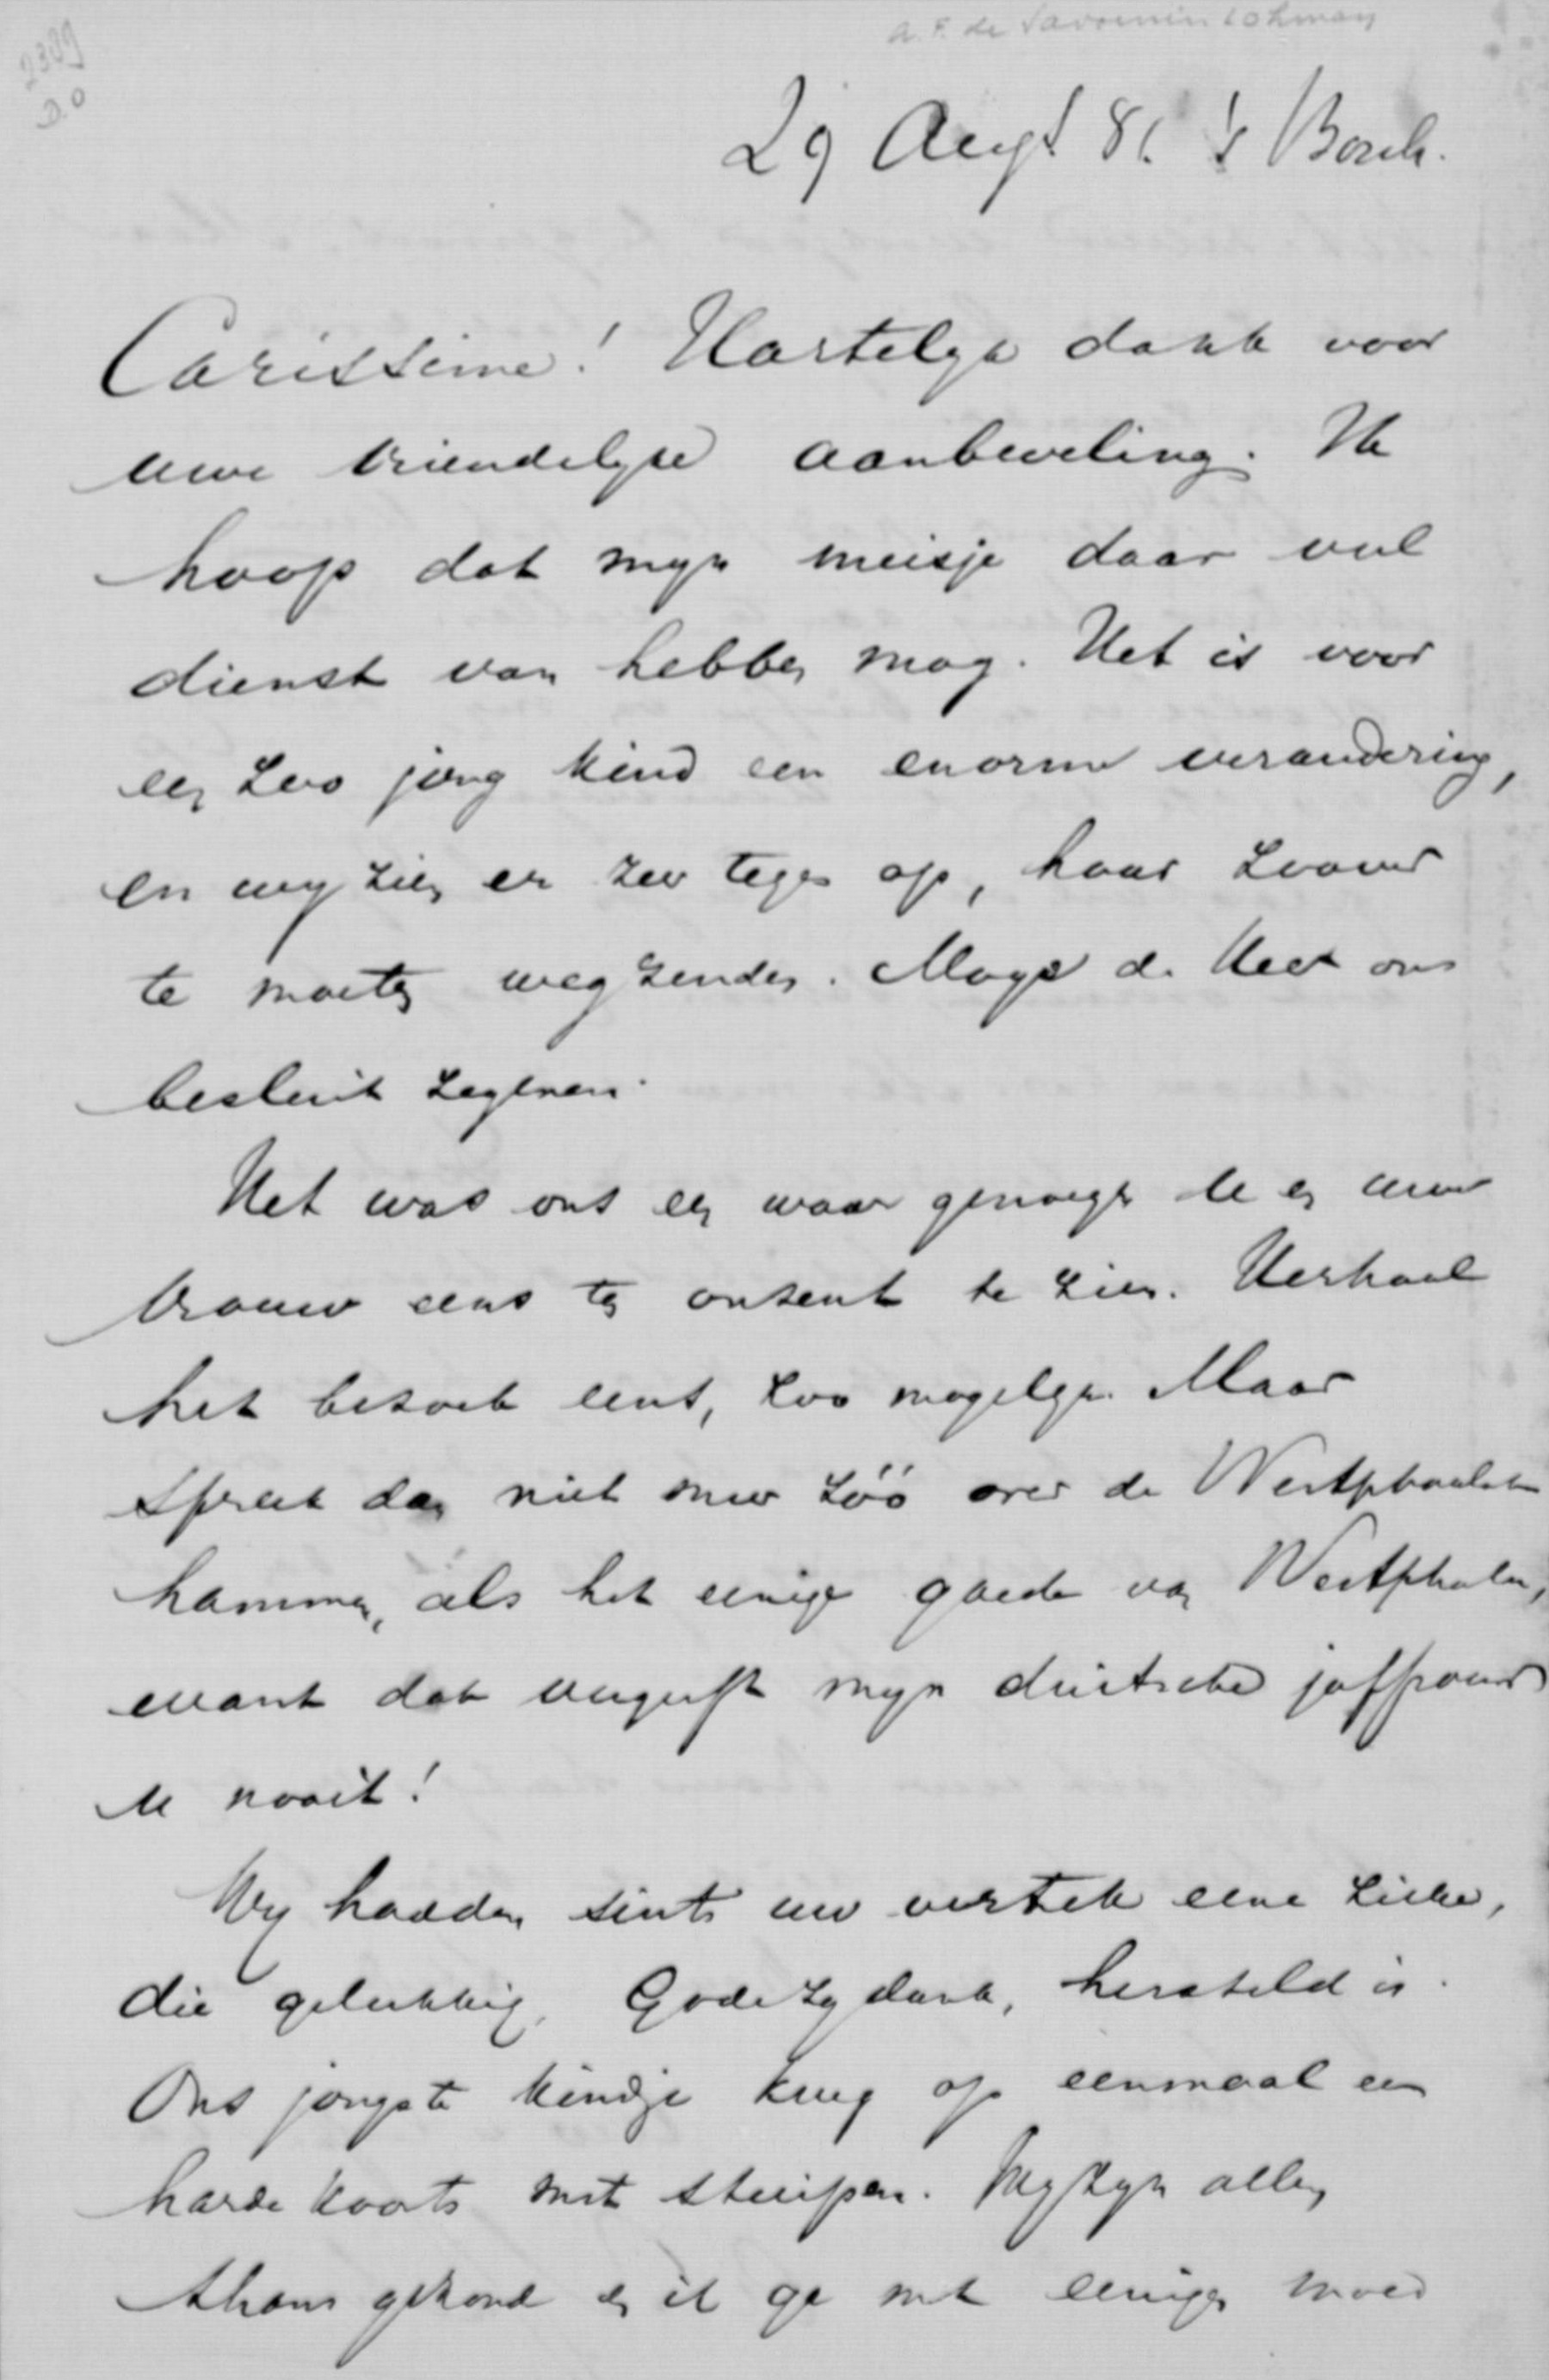 A. F. de Savornin Lohman
2389
D.O
29 Augt 81. 's Bosch.
Carissime! Hartelyk dank voor
uwe vriendelyke aanbeveling. Ik
hoop dat myn meisje daar veel
dienst van hebben mag. Het is voor
een zoo jong kind een enorme verandering,
en wy zien er zeer tegen op, haar zoover
te moeten wegzenden. Moge de Heer ons
besluit zegenen.
Het was ons een waar genoegen U en uwe
vrouw eens ten onzent te zien. Herhaal
het bezoek eens, zoo mogelyk. Maar
spreek dan niet meer zóó over de Westphaalsche
hammen, als het eenige goede van Westphalen,
want dat vergeeft myn duitsche juffrouw
U nooit!
Wy hadden sints uw vertrek eene zieke,
die gelukkig, Gode zy dank, hersteld is.
Ons jongste kindje kreeg op eenmaal een
harde koorts met stuipen. Wy zyn allen
thans gezond en ik ga met eenigen moed